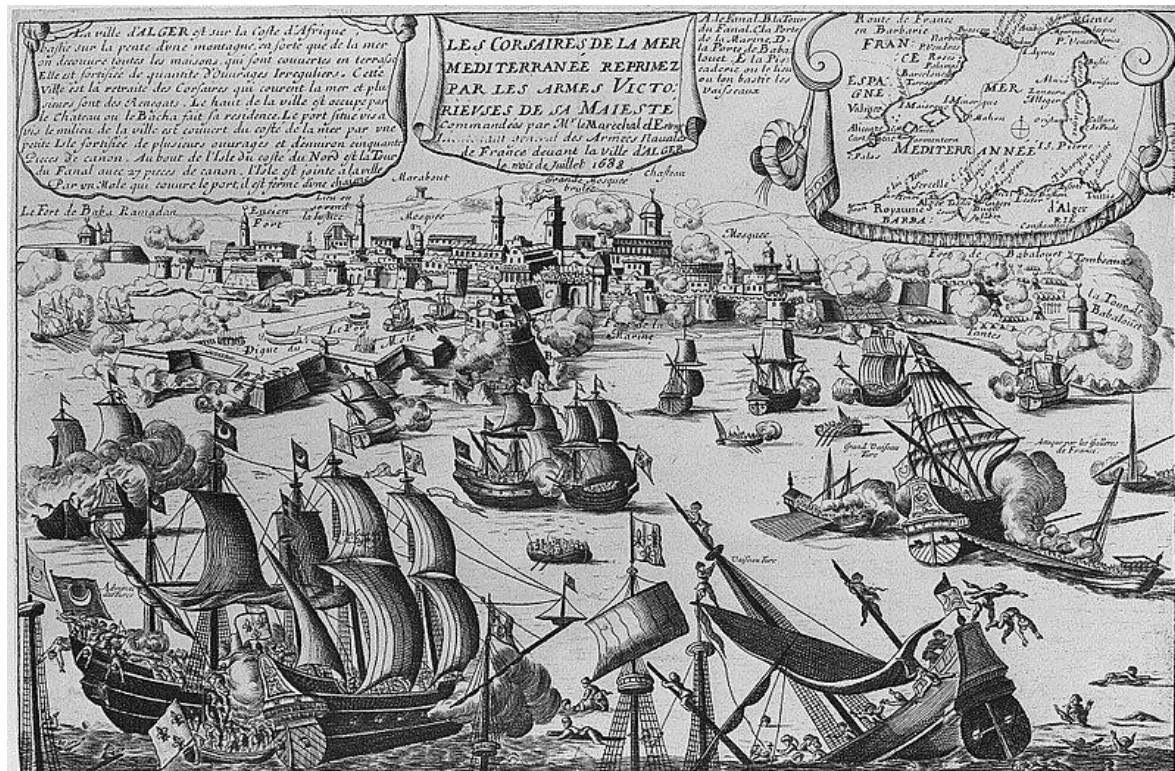 La ville d'ALGER est sur la Coste d'Afrique,
bastie sur la pente d'vne montagne, en sorte que de la mer
on decouvre toutes les maisons, qui sont couvertes en terrasse
Elle est fortifiée de quantité d'Ouvrages Irreguliers. Cette
Ville est la retraite des Corsaires qui courent la mer et plu
sieurs sont des Renegats. Le haut de la ville est occupé par
le Chateau ou le Bacha fait sa residence. Le port situé vis a
vis le milieu de la ville est couvert du costé de la mer par vne
petite Isle fortifiée de plusieurs ouvrages et d'environ cinquante
Pieces de canon. Au bout de l'Isle du costé du Nord est la Tour
du Fanal avec 27 pieces de canon. l'Isle est jointe a la ville
Par vn Mole qui couvre le port, il est fermé d'vne chaine
LES CORSAIRES DE LA MER
MEDITERRANÉE REPRIMEZ
PAR LES ARMES VICTO-
RIEUSES DE SA MAIESTÉ
Commandées par Mr. le Marechal d'Estrées
general des Armées navales
de France devant la Ville d'ALGER
le mois de Juillet 1688
A. le Fanal. B. la Tour
du Fanal. C. la Porte
de la Marine. D.
la Porte de Baba
louet. E. la Pies
caderie ou le lieu
ou l'on bastit les
Vaisseaux
Route de France
en Barbarie
FRAN
CE
Genes
P. Vendres
Roses
Palamos
Barcelonne
Terragone
ESPA
GNE
I. Maiorque
I. Minorque
Mahon
Alicante
C. Palos
MER
MEDITERRANNÉE
I. S. Pierre
Royaume
d'Alger
BARBA
RIE
Marabout
Grande Mosquée
brulée
Chasteau
Le Fort de Baba Ramadan
Encien
Fort
Lieu ou
se rend
la Justice
Mosquée
Mosquée
Fort de Babalouet
Tombeaux
La Tour de
Babalouet
Le Port
Mole
Digue du
Port de la
Marine
B
Tantes
Grand Vaisseau
Turc
Attaqué par les Galleres
de France
Vaisseau Turc